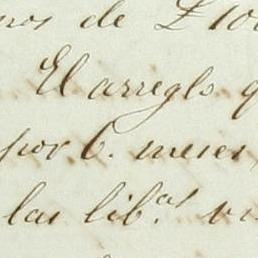 nos de £ 100
El arreglo q
por 6. meses
las lib.as